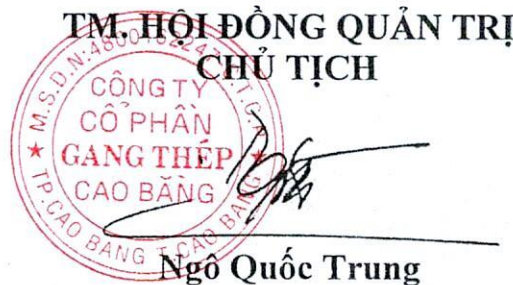 TM. HỘI ĐỒNG QUẢN TRỊ
CHỦ TỊCH
CÔNG TY
CỔ PHẦN
GANG THÉP
CAO BẰNG
TP. CAO BẰNG T. CAO BẰNG
Ngô Quốc Trung